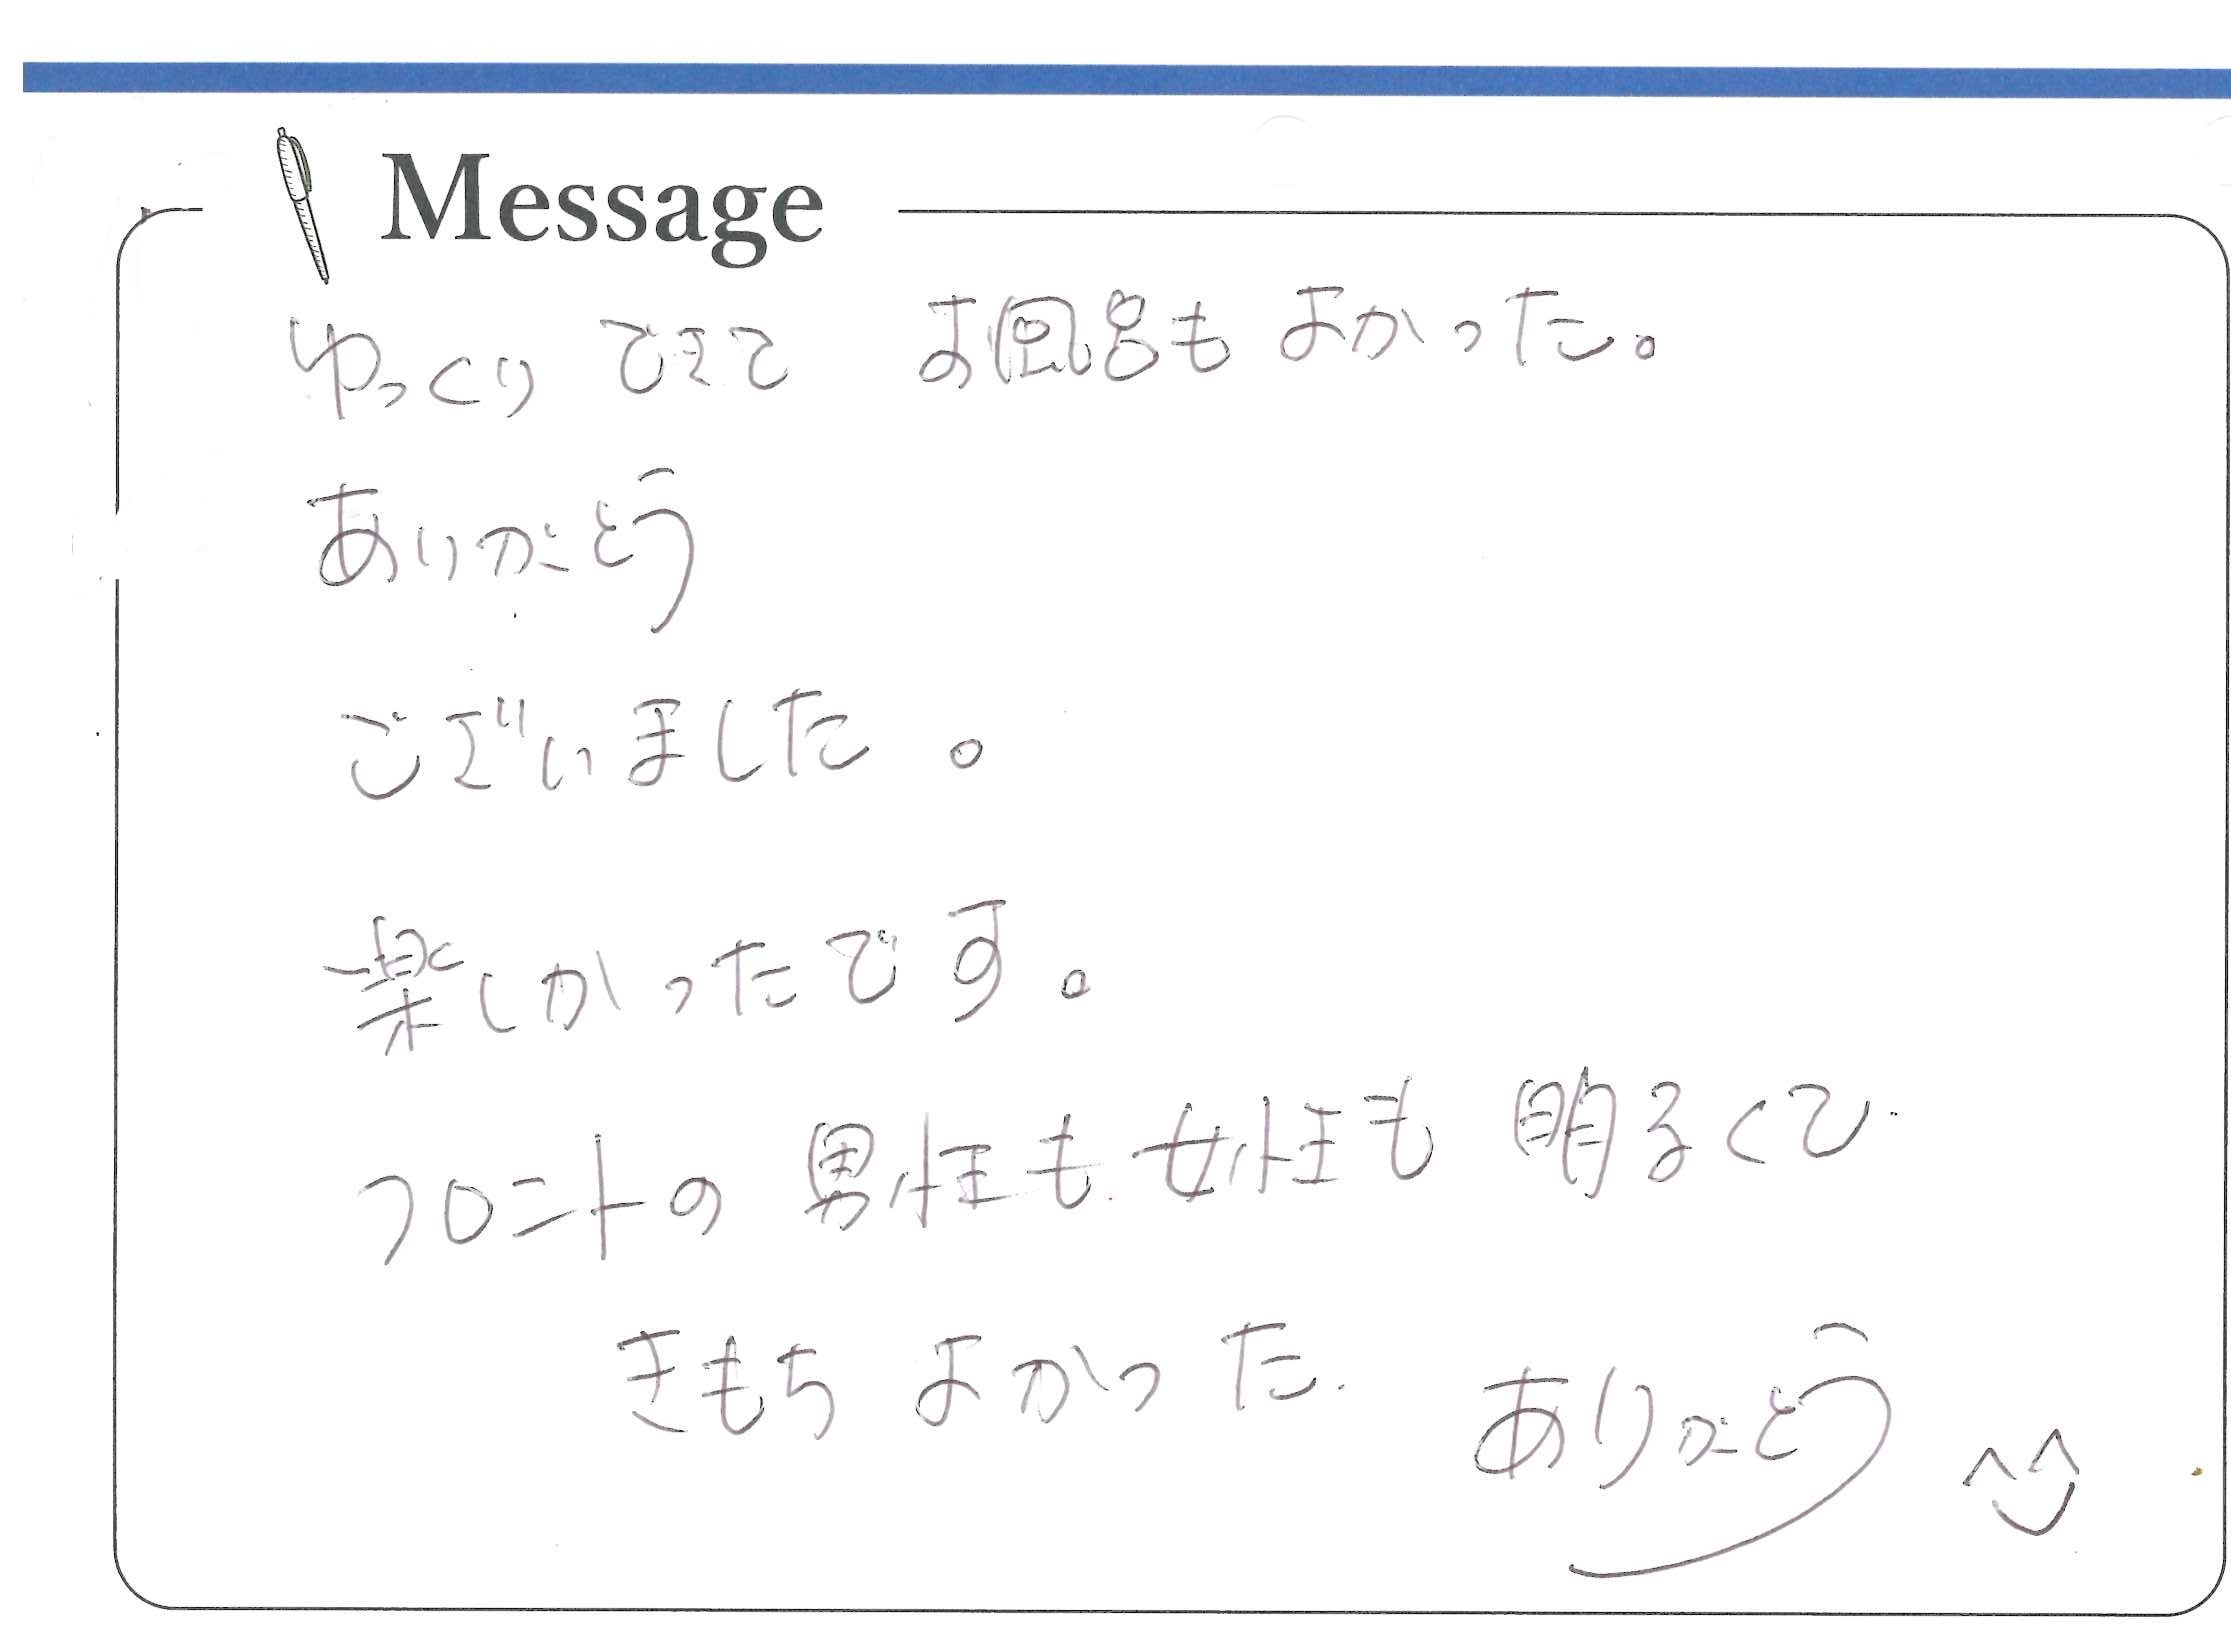 Message
ゆっくりできて お風呂もよかった。
ありがとう
ございました。
楽しかったです。
フロントの男性も女性も明るくて
きもちよかった ありがとう